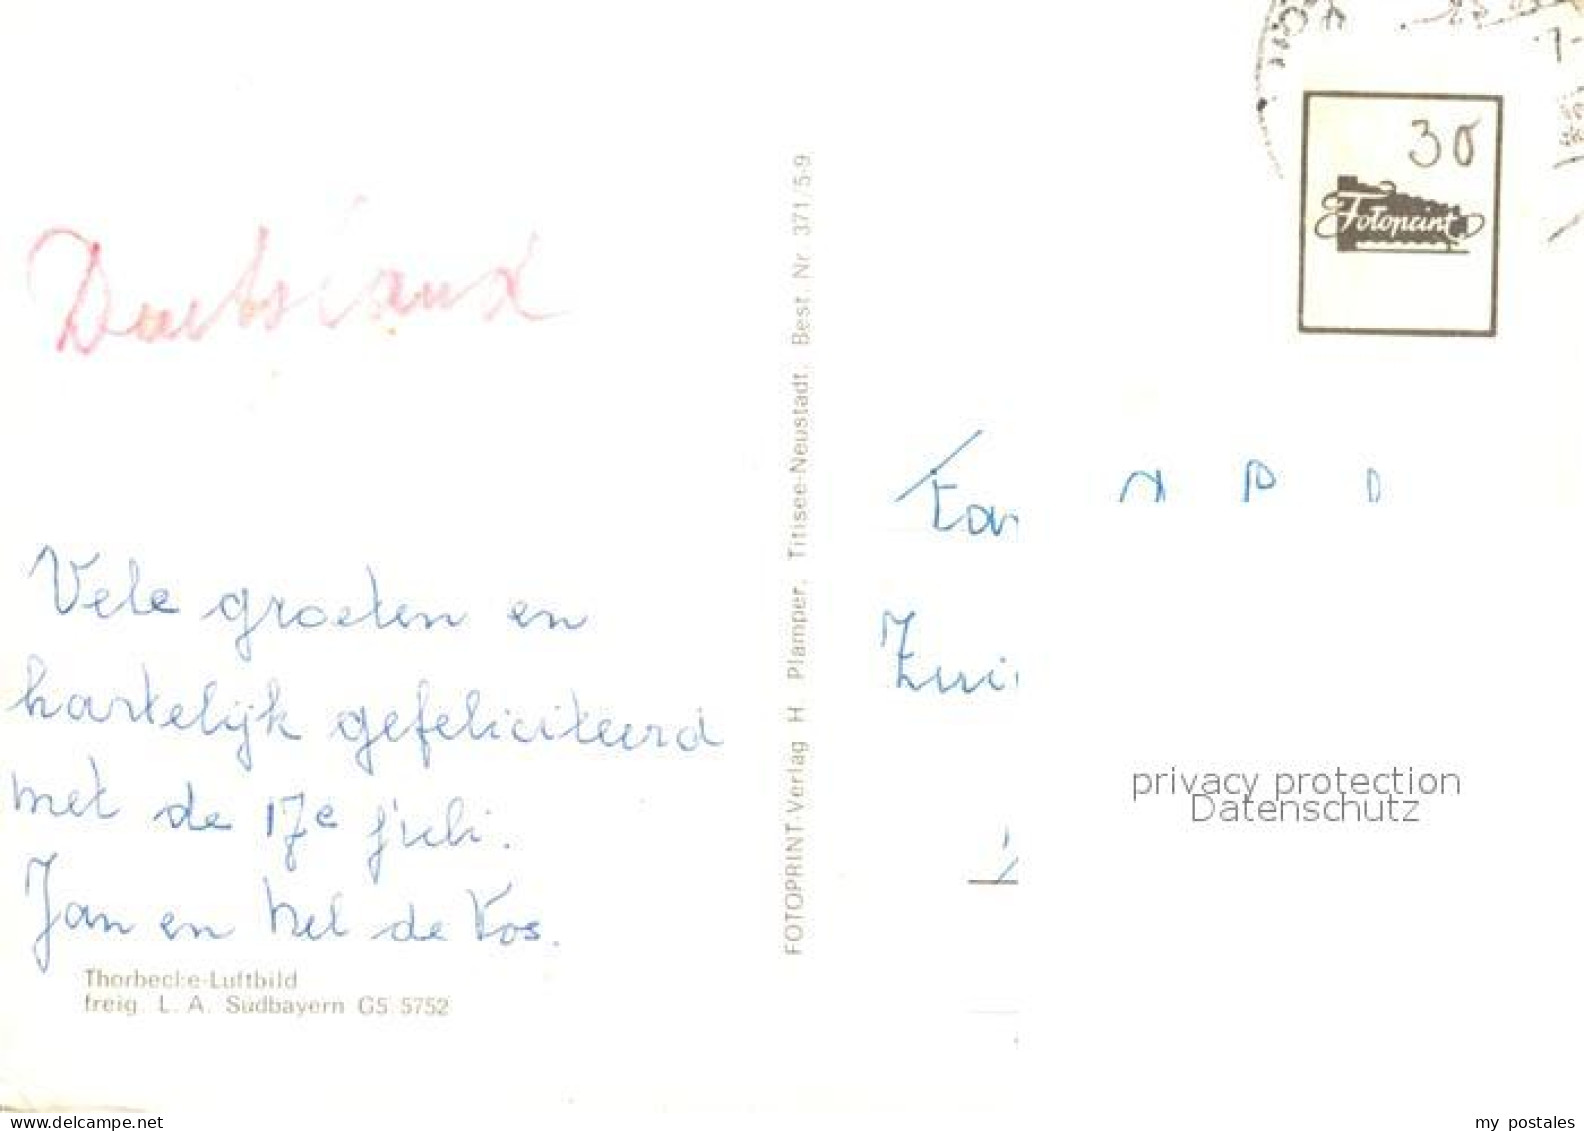 30
Fotoprint
Duitsland
Vele groeten en
hartelijk gefeliciteerd
met de 17e juli.
Jan en Nel de Vos.
Thorbecke-Luftbild
freig. L. A. Südbayern G5 5752
FOTOPRINT-Verlag H. Plamper, Titisee-Neustadt, Best. Nr. 371/5-9
Fam
Zui
privacy protection
Datenschutz
www.delcampe.net
my postales